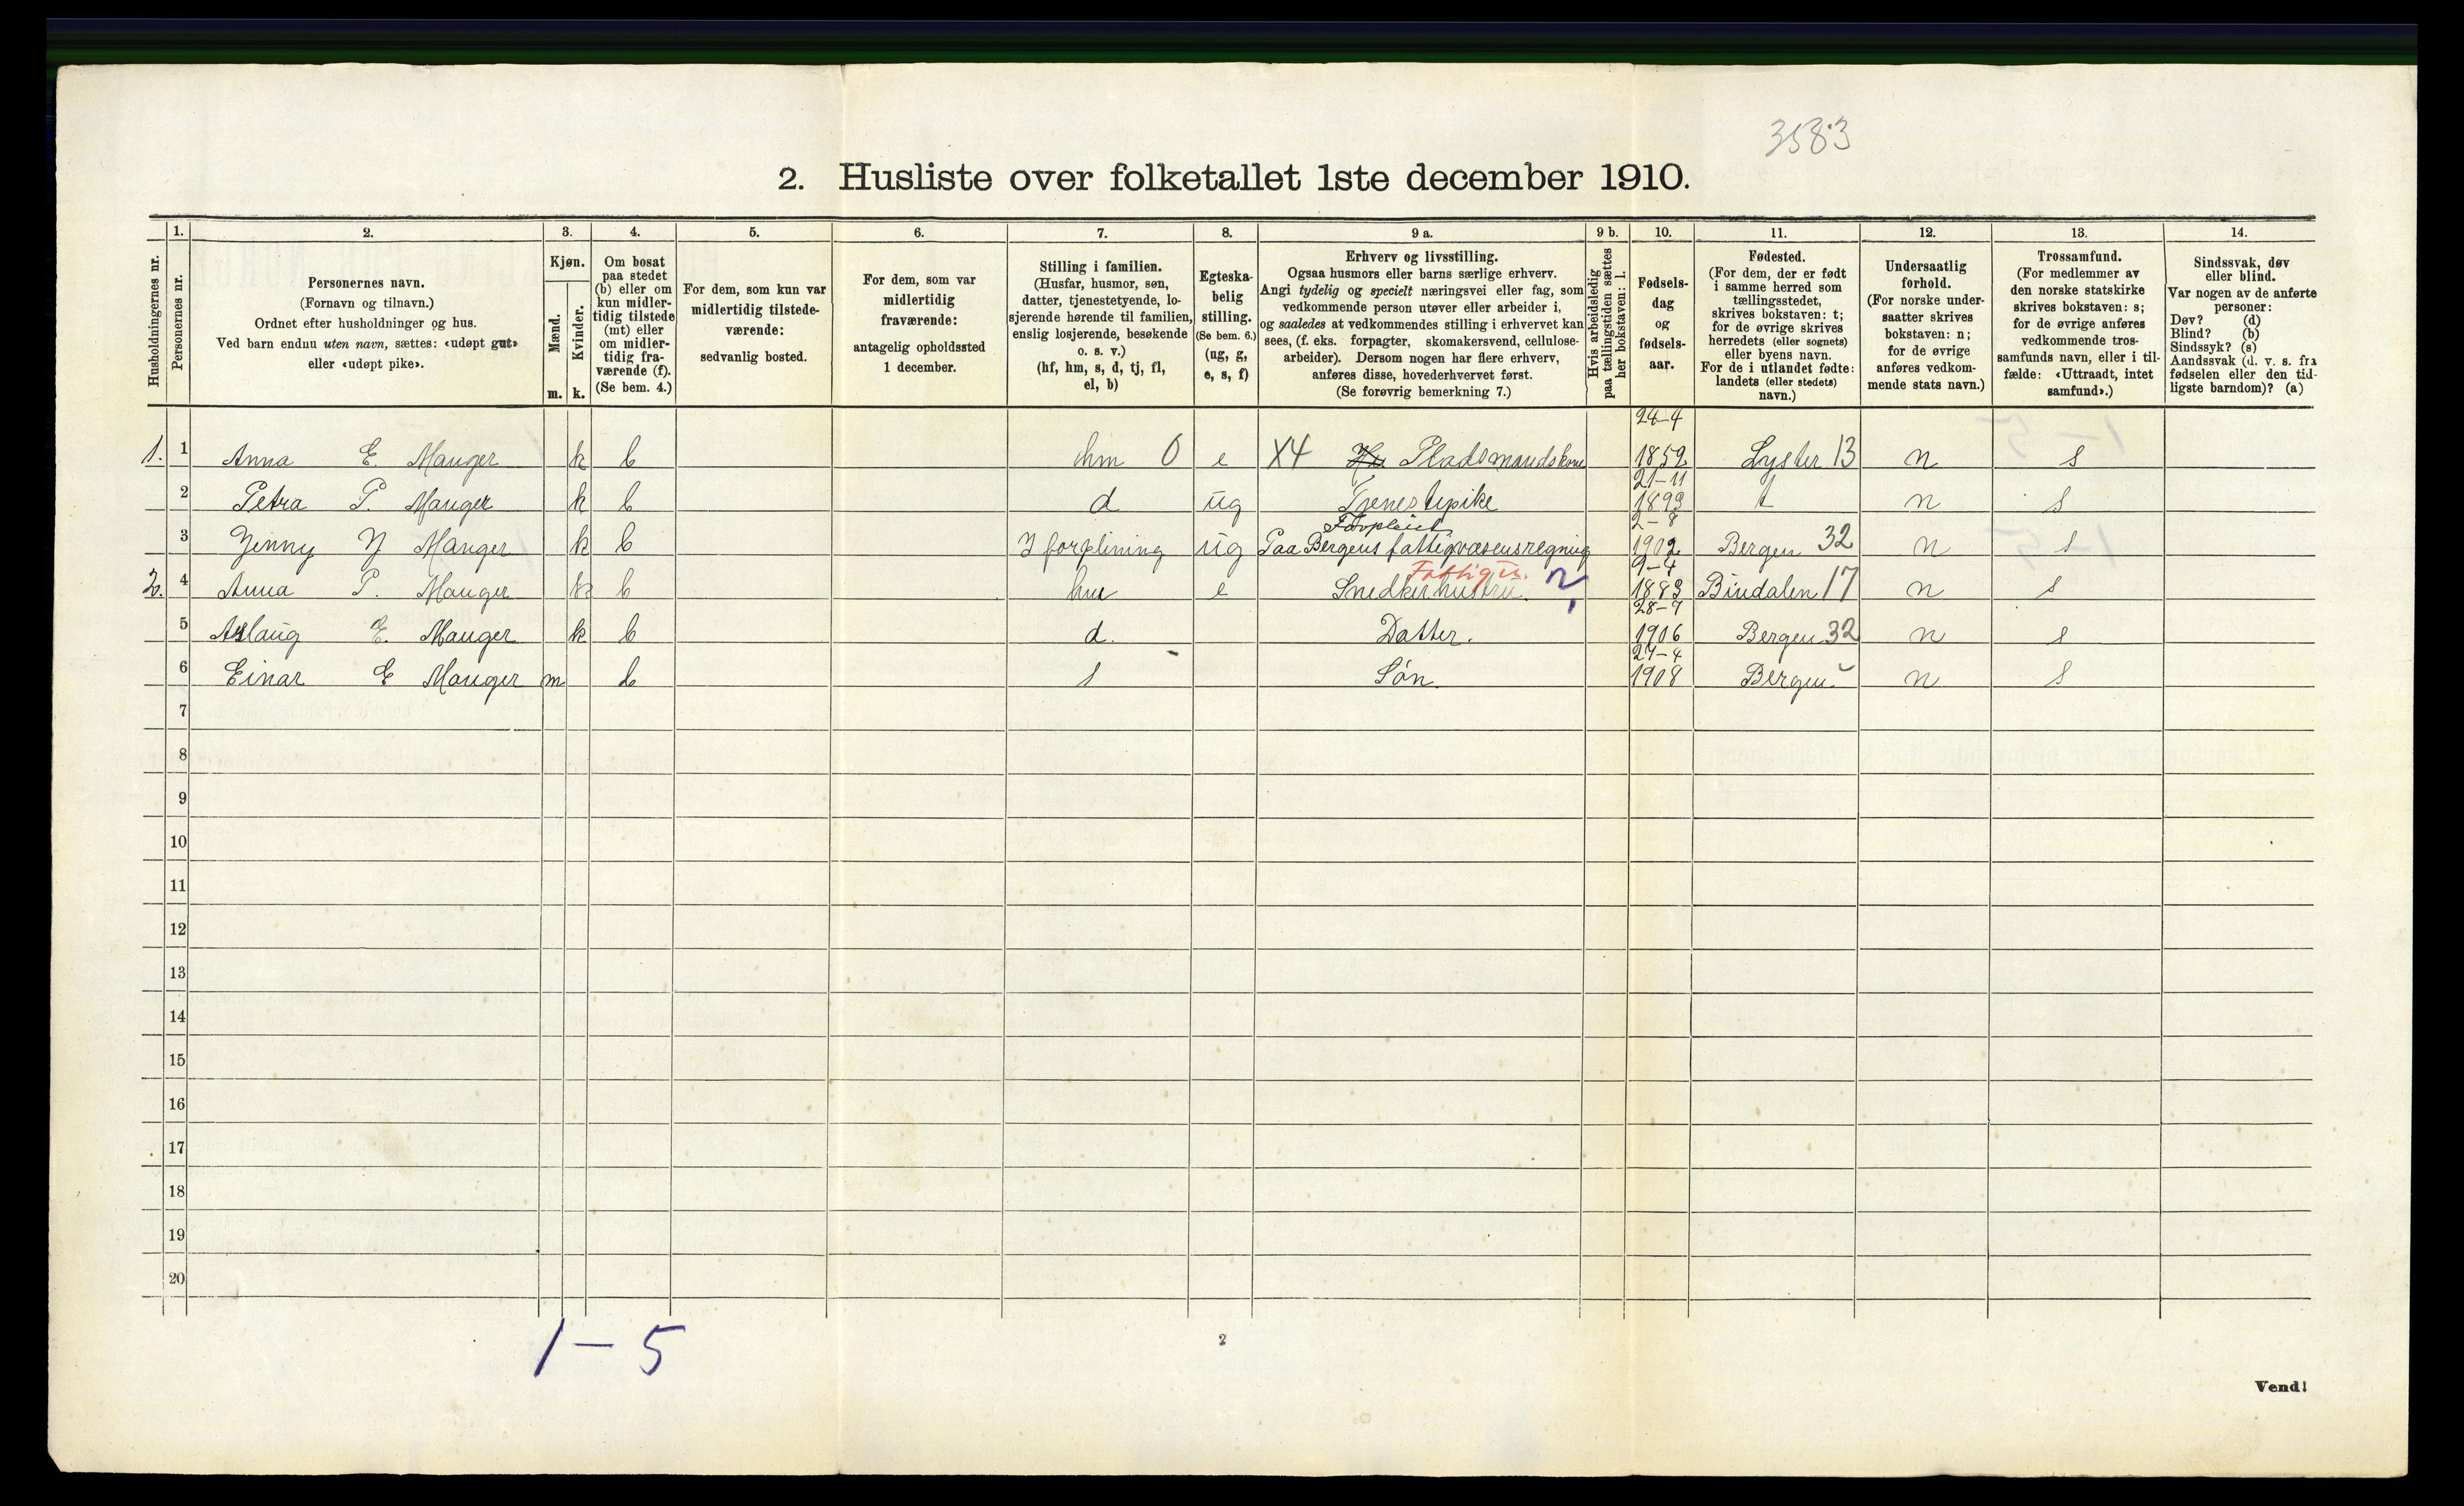 3583
2. Husliste over folketallet 1ste december 1910.
Husholdningernes nr.
1. Personernes nr.
2. Personernes navn.
(Fornavn og tilnavn.)
Ordnet efter husholdninger og hus.
Ved barn endnu uten navn, sættes: «udøpt gut»
eller «udøpt pike».
3. Kjøn.
Mænd. m.
Kvinder. k.
4. Om bosat
paa stedet
(b) eller om
kun midler-
tidig tilstede
(mt) eller
om midler-
tidig fra-
værende (f).
(Se bem. 4.)
5. For dem, som kun var
midlertidig tilstede-
værende:
sedvanlig bosted.
6. For dem, som var
midlertidig
fraværende:
antagelig opholdssted
1 december.
7. Stilling i familien.
(Husfar, husmor, søn,
datter, tjenestetyende, lo-
sjerende hørende til familien,
enslig losjerende, besøkende
o. s. v.)
(hf, hm, s, d, tj, fl,
el, b)
8. Egteska-
belig
stilling.
(Se bem. 6.)
(ug, g,
e, s, f)
9 a. Erhverv og livsstilling.
Ogsaa husmors eller barns særlige erhverv.
Angi tydelig og specielt næringsvei eller fag, som
vedkommende person utøver eller arbeider i,
og saaledes at vedkommendes stilling i erhvervet kan
sees, (f. eks. forpagter, skomakersvend, cellulose-
arbeider). Dersom nogen har flere erhverv,
anføres disse, hovederhvervet først.
(Se forøvrig bemerkning 7.)
9 b. Hvis arbeidsledig
paa tællingstiden sættes
her bokstaven: l.
10. Fødsels-
dag
og
fødsels-
aar.
11. Fødested.
(For dem, der er født
i samme herred som
tællingsstedet,
skrives bokstaven: t;
for de øvrige skrives
herredets (eller sognets)
eller byens navn.
For de i utlandet fødte:
landets (eller stedets)
navn.)
12. Undersaatlig
forhold.
(For norske under-
saatter skrives
bokstaven: n;
for de øvrige
anføres vedkom-
mende stats navn.)
13. Trossamfund.
(For medlemmer av
den norske statskirke
skrives bokstaven: s;
for de øvrige anføres
vedkommende tros-
samfunds navn, eller i til-
fælde: «Uttraadt, intet
samfund».)
14. Sindssvak, døv
eller blind.
Var nogen av de anførte
personer:
Døv? (d)
Blind? (b)
Sindssyk? (s)
Aandssvak (d. v. s. fra
fødselen eller den tid-
ligste barndom)? (a)
24-4
1. 1 Anna E. Manger k b hm 0 e X4 Pladsmandskone 1852 Lyster 13 n s
21-11
2 Petra P. Manger k b d ug Tjenestepike 1893 t n s
Forpleiet 2-8
3 Jenny J Manger k b I forplining ug Paa Bergens fattigvæsensregning 1902 Bergen 32 n s
Fattigu. 9-4
2. 4 Anna P. Manger k b hm e Snedkerhustru. 2, 1883 Bindalen 17 n s
28-7
5 Aslaug E. Manger k b d. Datter. 1906 Bergen 32 n s
27-4
6 Einar E Manger m b s Søn. 1908 Bergen n s
7
8
9
10
11
12
13
14
15
16
17
18
19
20
1-5
2
Vend!